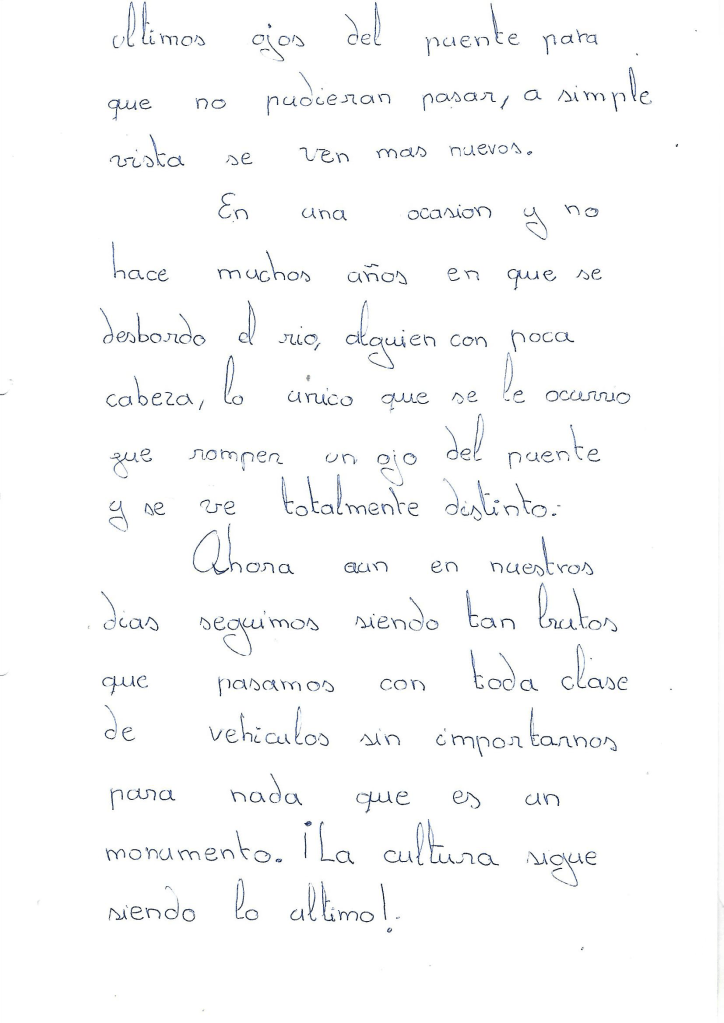 ultimos ojos del puente para
que no pudieran pasar, a simple
vista se ven mas nuevos.
En una ocasion y no
hace muchos años en que se
desbordo el rio, alguien con poca
cabeza, lo único que se le ocurrio
que romper un ojo del puente
y se ve totalmente distinto.
Ahora aun en nuestros
dias seguimos siendo tan brutos
que pasamos con toda clase
de vehiculos sin importarnos
para nada que es un
monumento. ¡La cultura sigue
siendo lo ultimo!.